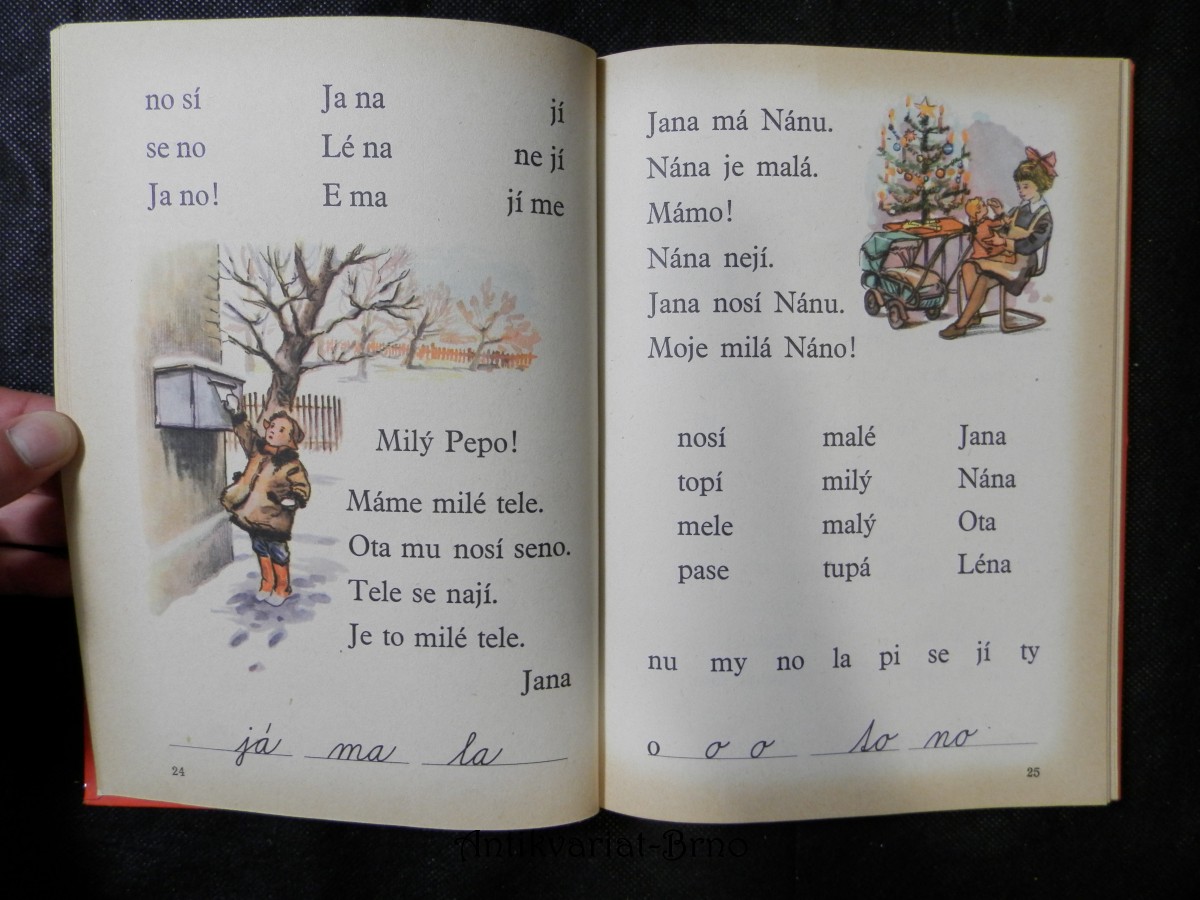 no sí Ja na jí
se no Lé na ne jí
Ja no! E ma jí me
Milý Pepo!
Máme milé tele.
Ota mu nosí seno.
Tele se nají.
Je to milé tele.
Jana
já ma la
24
Jana má Nánu.
Nána je malá.
Mámo!
Nána nejí.
Jana nosí Nánu.
Moje milá Náno!
nosí malé Jana
topí milý Nána
mele malý Ota
pase tupá Léna
nu my no la pi se jí ty
o o o to no
25
Antikvariat-Brno